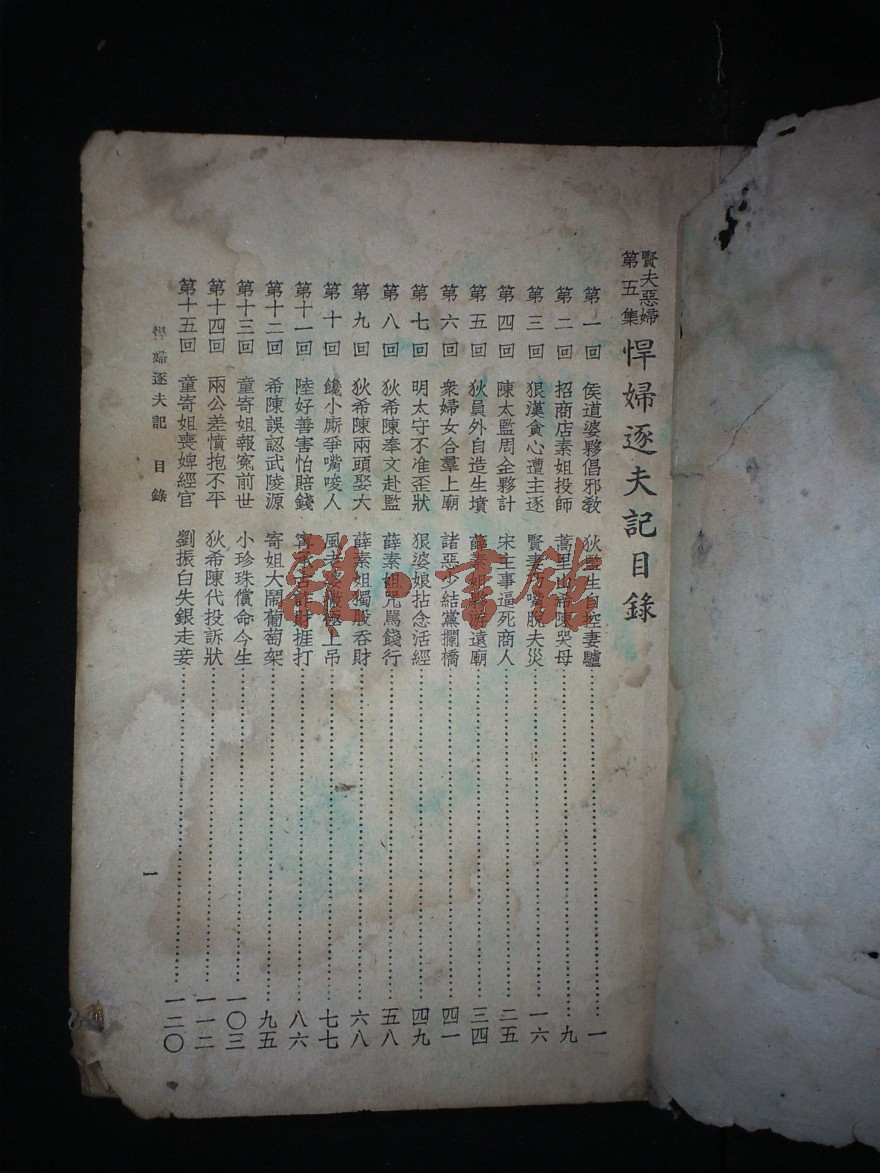 賢夫惡婦
第五集
悍婦逐夫記目錄
第一回 侯道婆夥倡邪教 狄監生自控妻驢 一
第二回 招商店素姐投師 蒿里山希陳哭母 九
第三回 狠漢貪心遭主逐 賢妻巧嘴脫夫災 一六
第四回 陳太監周全夥計 宋主事逼死商人 二五
第五回 狄員外自造生墳 薛素姐夥游遠廟 三四
第六回 衆婦女合羣上廟 諸惡少結黨攔橋 四一
第七回 明太守不准歪狀 狠婆娘拈念活經 四九
第八回 狄希陳奉文赴監 薛素姐咒罵餞行 五八
第九回 狄希陳兩頭娶大 薛素姐獨股吞財 六八
第十回 饞小廝爭嘴唆人 風老婆撒極上吊 七七
第十一回 陸好善害怕賠錢 甯承古詐財捱打 八六
第十二回 希陳誤認武陵源 寄姐大鬧葡萄架 九五
第十三回 童寄姐報冤前世 小珍珠償命今生 一〇三
第十四回 兩公差憤抱不平 狄希陳代投訴狀 一一二
第十五回 童寄姐喪婢經官 劉振白失銀走妾 一二〇
悍婦逐夫記 目錄
一
雜·書館